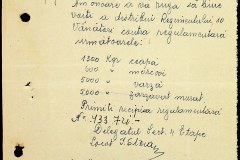 Am onoare a vă ruga să bine
voiți a distribui Regimentului 10
Vânători contra regulamentară
următoarele:
1300 Kgr ceapă
600 " morcovi
5000 " varză
5000 " zarzavat murat.
Primiți recipisa regulamentară
No 433.726
Delegatul Sect. 4 Etape
Locot.